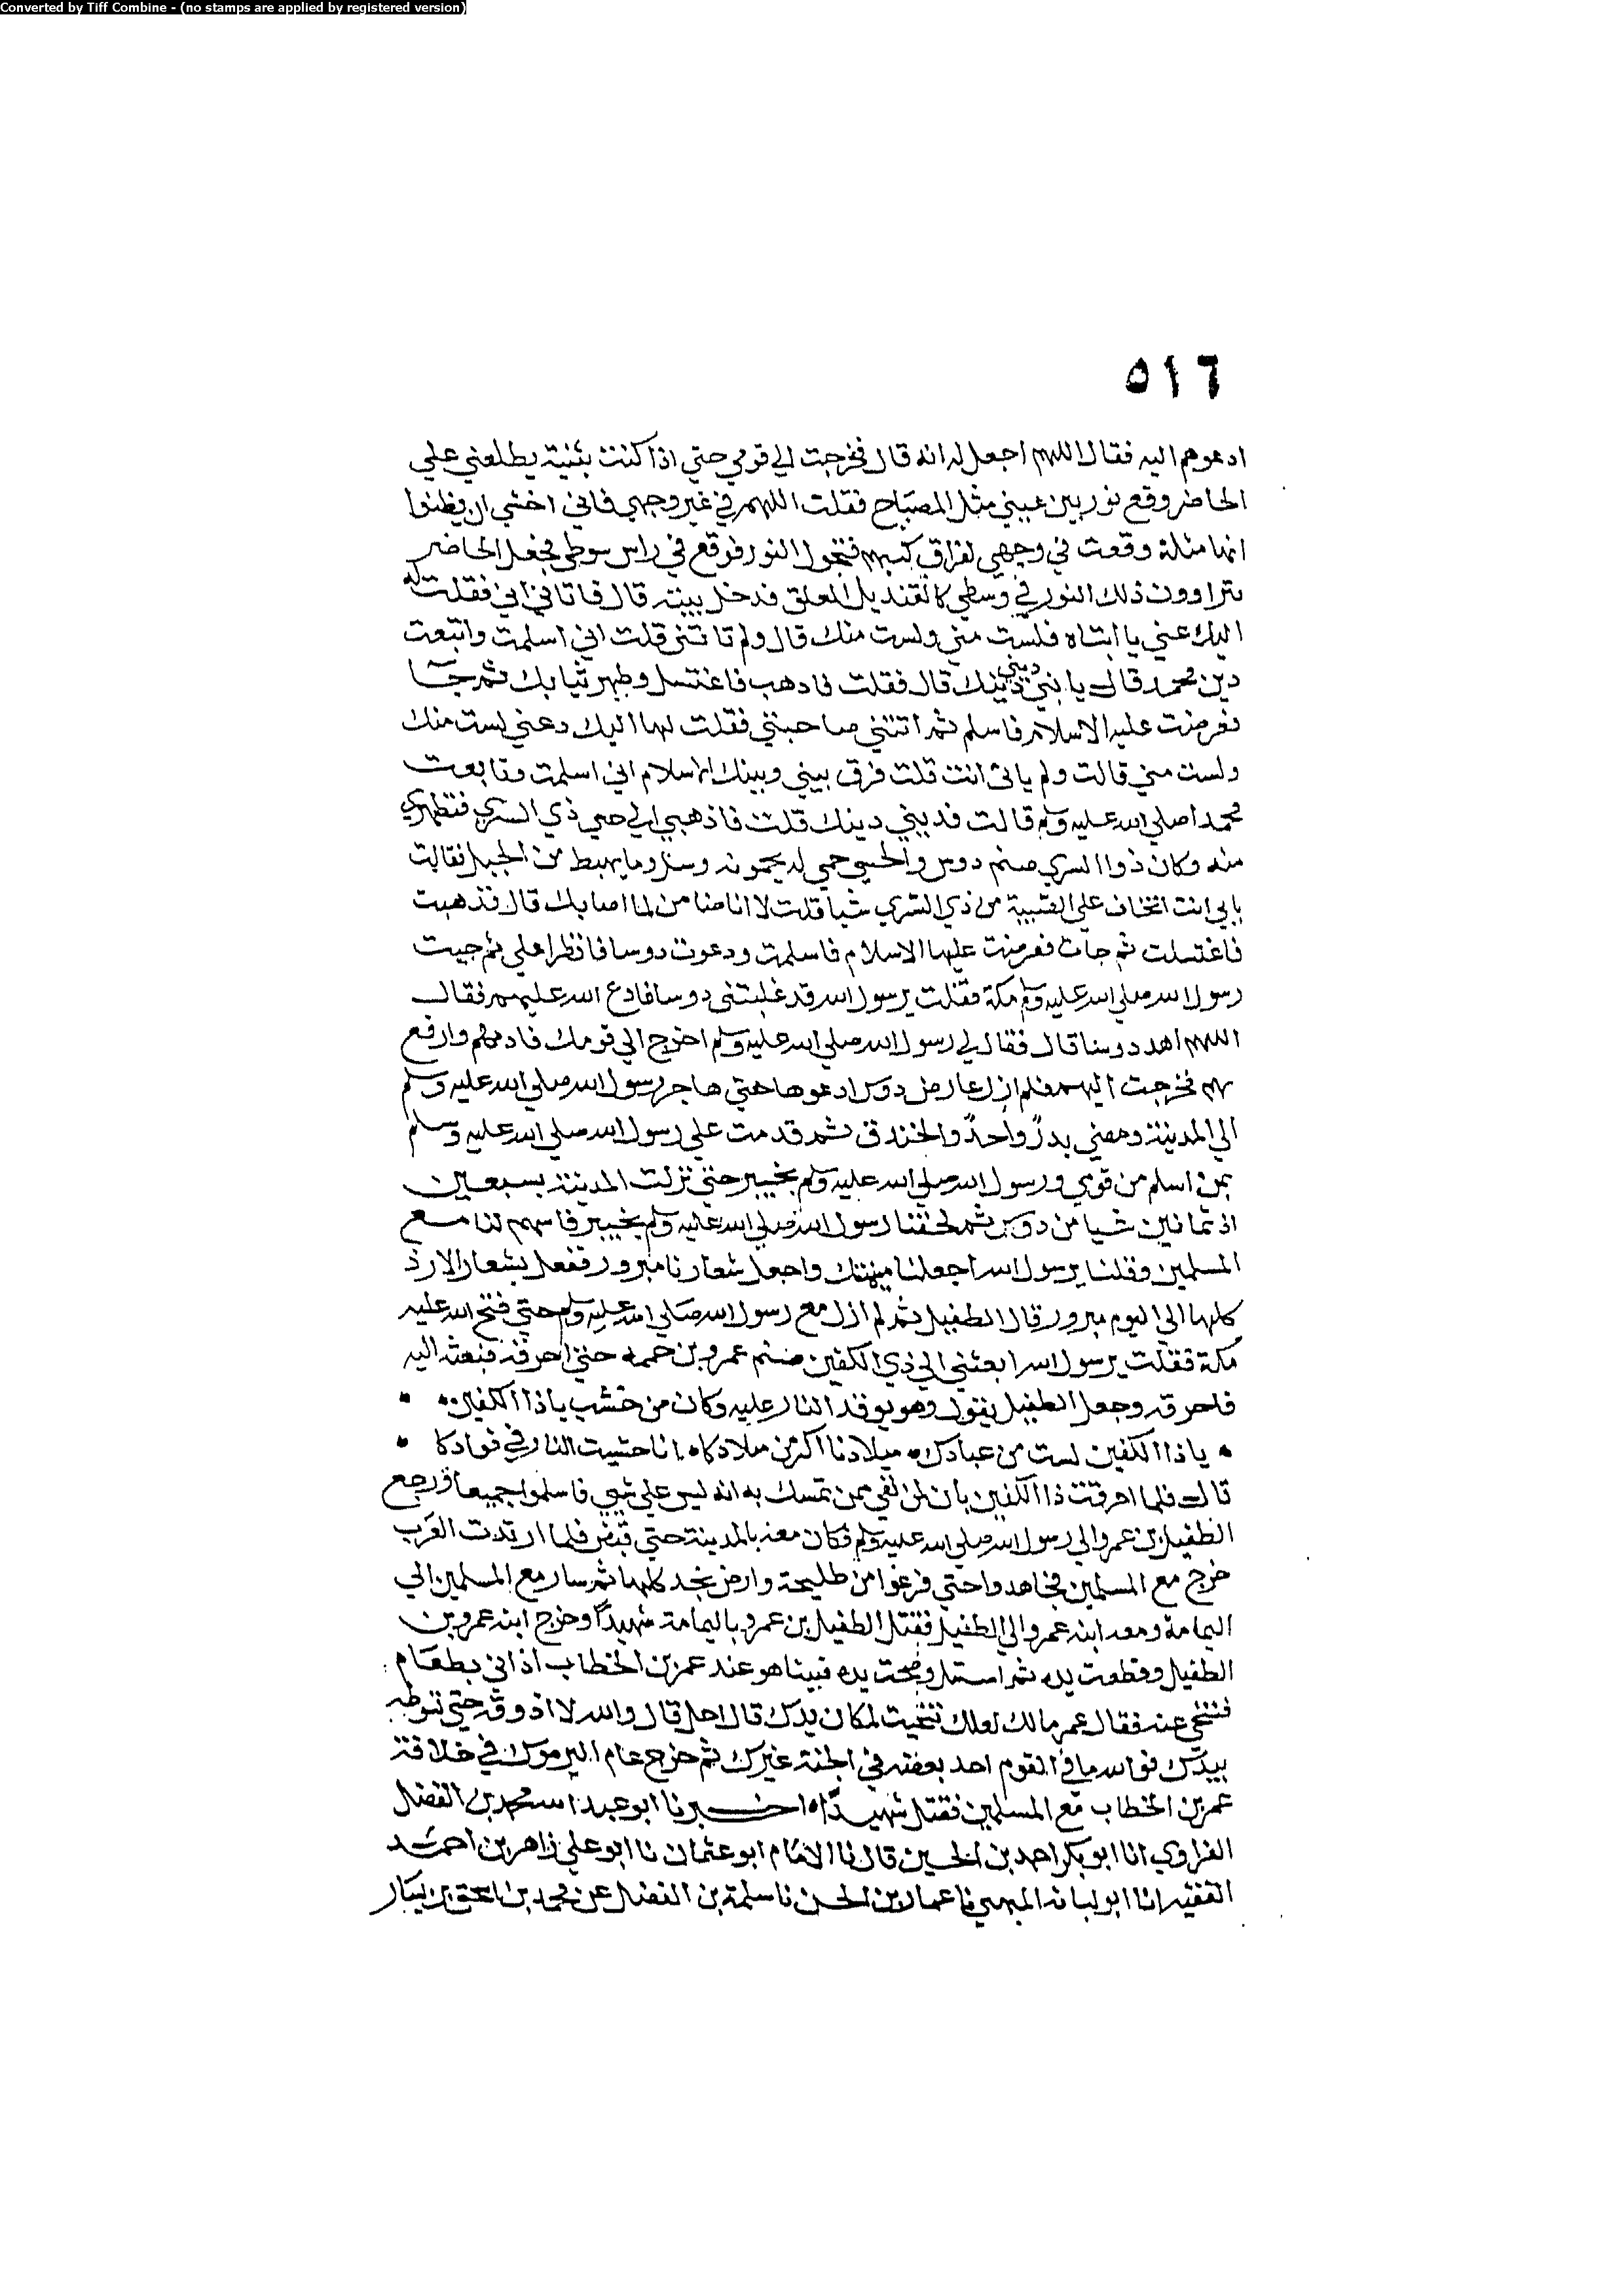 Converted by Tiff Combine - (no stamps are applied by registered version)
٥١٦
ادعوهم اليه فقال اللهم اجعل له اية قال فخرجت الي قومي حتي اذا كنت بثنية يطلعني علي
الحاضر وقع نور بين عيني مثل المصباح فقلت اللهم في غير وجهي فاني اخشي ان يظنوا
انها مثلة وقعت في وجهي لفراق فتحول النور فوقع في راس سوطي فجعل الحاضر
يتراوون ذلك النور في وسطي كالقنديل المعلق فدخل بيته قال فاتاني ابي فقلت له
اليك عني يا ابتاه فلست مني ولست منك قال ولم قلت اني اسلمت واتبعت
دين محمد قال يا بني ديني دينك قال فقلت فاذهب فاغتسل وطهر ثيابك ثم جا
فعرضت عليه الاسلام فاسلم ثم اتتني صاحبتي فقلت لها اليك عني لست منك
ولست مني قالت ولم بابي انت قلت فرق بيني وبينك الاسلام اني اسلمت وتابعت
محمدا صلي الله عليه وسلم قالت فديني دينك قلت فاذهبي الي حسي ذي الشري فتطهري
منه وكان ذوا السري صنم دوس والحسي حمي له يحمونه وما يهبط من الجبل فقالت
بابي انت اتخاف علي الصبية من ذي الشري شيا قلت لا انا ضامن لما اصابك قال فذهبت
فاغتسلت ثم جات فعرضت عليها الاسلام فاسلمت ودعوت دوسا علي ثم جيت
رسول الله صلي الله عليه وسلم مكة فقلت يرسول الله قد غلبتني دوسا فادع الله عليهم فقال
اللهم اهد دوسا قال فقال لي رسول الله صلي الله عليه وسلم اخرج الي قومك فادعهم وارفع
بهم فخرجت اليهم فلم ازل بارض دوس ادعوها حتي هاجر رسول الله صلي الله عليه وسلم
الي المدينة ومضي بدر واحد والخندق ثم قدمت علي رسول الله صلي الله عليه وسلم
بمن اسلم من قومي ورسول الله صلي الله عليه وسلم بخيبر حتي نزلت المدينة بسبعين
او ثمانين من دوس ثم لحقنا رسول الله صلي الله عليه وسلم بخيبر فاسهم لنا مع
المسلمين وقلنا يرسول الله اجعلنا ميمنتك واجعل شعارنا مبرور ففعل بشعار الازد
كلها الي اليوم مبرور قال الطفيل ثم لم ازل مع رسول الله صلي الله عليه وسلم حتي فتح الله عليه
مكة فقلت يرسول الله ابعثني الي ذي الكفين صنم عمرو بن حممه حتي احرقه فبعثه اليه
فاحرقه وجعل الطفيل يقول وهو يوقد النار عليه وكان من خشب ياذا الكفين
ياذا الكفين لست من عبادك ميلادنا اكبر من ميلادكا انا حشيت النار في فوادكا
قال فلما احرقت ذا الكفين بان لمن بقي ممن تمسك به انه ليس علي شي فاسلموا جميعا ورجع
الطفيل بن عمرو الي رسول الله صلي الله عليه وسلم فكان معه بالمدينة حتي قبض فلما ارتدت العرب
خرج مع المسلمين فجاهدوا حتي فرغوا من طليحة وارض نجد كلها ثم سار مع المسلمين الي
اليمامة ومعه ابنه عمرو الي الطفيل فقتل الطفيل بن عمرو باليمامة شهيدا وخرج ابنه عمرو بن
الطفيل وقطعت يده ثم استبل وصحت يده فبينا هو عند عمر بن الخطاب اذ اتي بطعام
فتنحي عنه فقال عمر مالك لعلك تنحيت لمكان يدك قال اجل قال والله لا اذوقه حتي تسوطه
بيدك فوالله ما في القوم احد بعضه في الجنة غيرك ثم خرج عام اليرموك في خلافة
عمر بن الخطاب مع المسلمين فقتل شهيدا اخبرنا ابو عبد الله محمد بن الفضل
الفراوي انا ابو بكر احمد بن الحسين قال نا الامام ابو عثمان نا ابو علي زاهر بن احمد
الفقيه انا ابو لبابه نا عمار بن الحسن نا سلمة بن الفضل عن محمد بن اسحق بن يسار